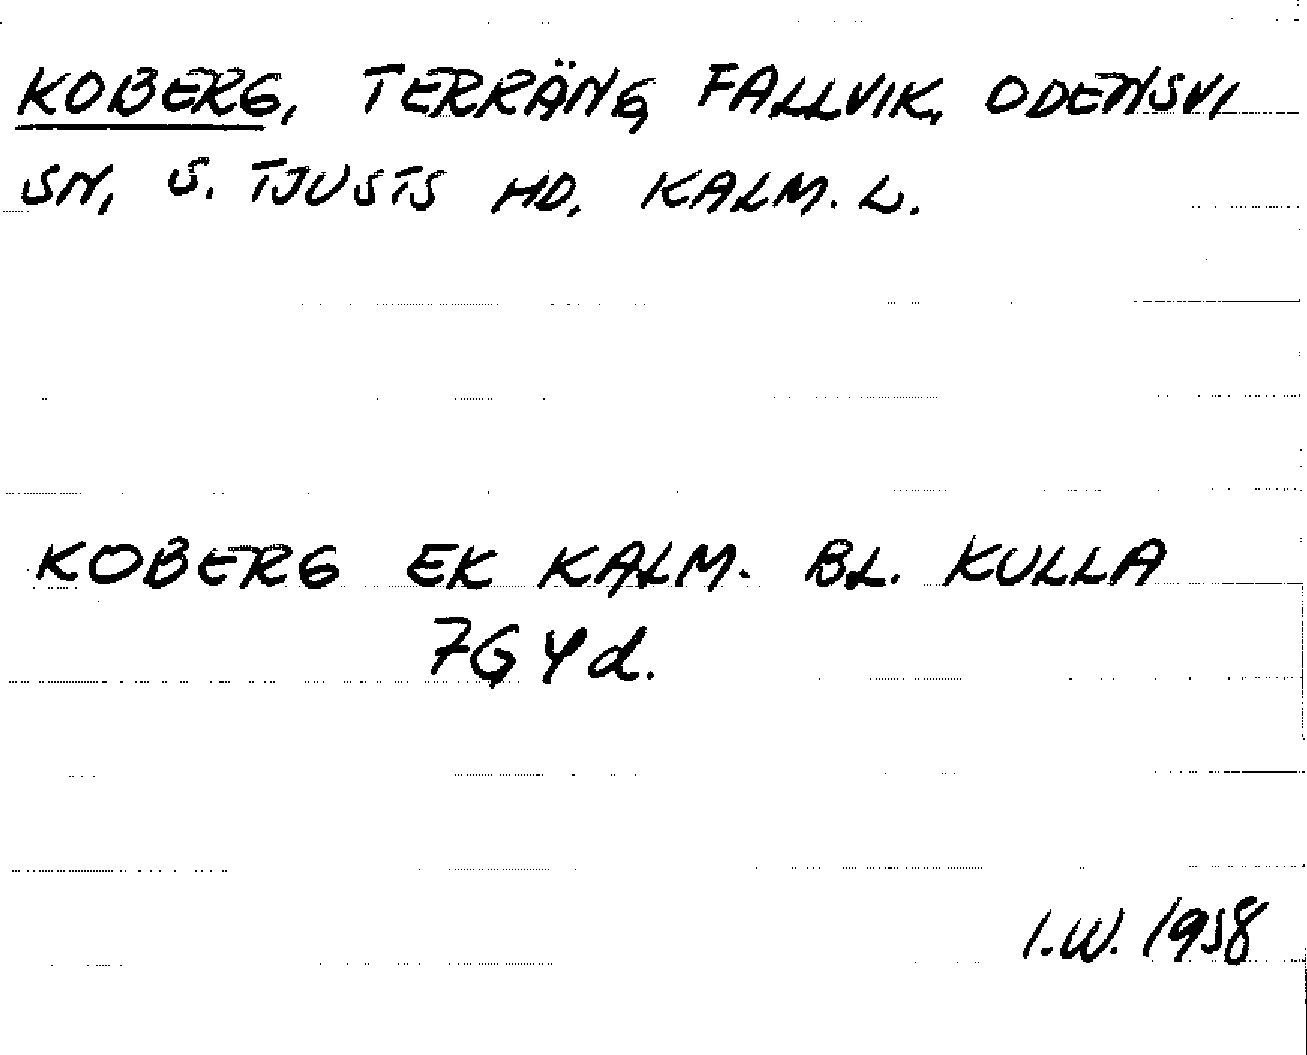 KOBERG, TERRÄNG, FALLVIK, ODENSVI
SN, S. TJUSTS HD, KALM. L.
KOBERG EK KALM. BL. KULLA
7G4d.
I.W. 1958